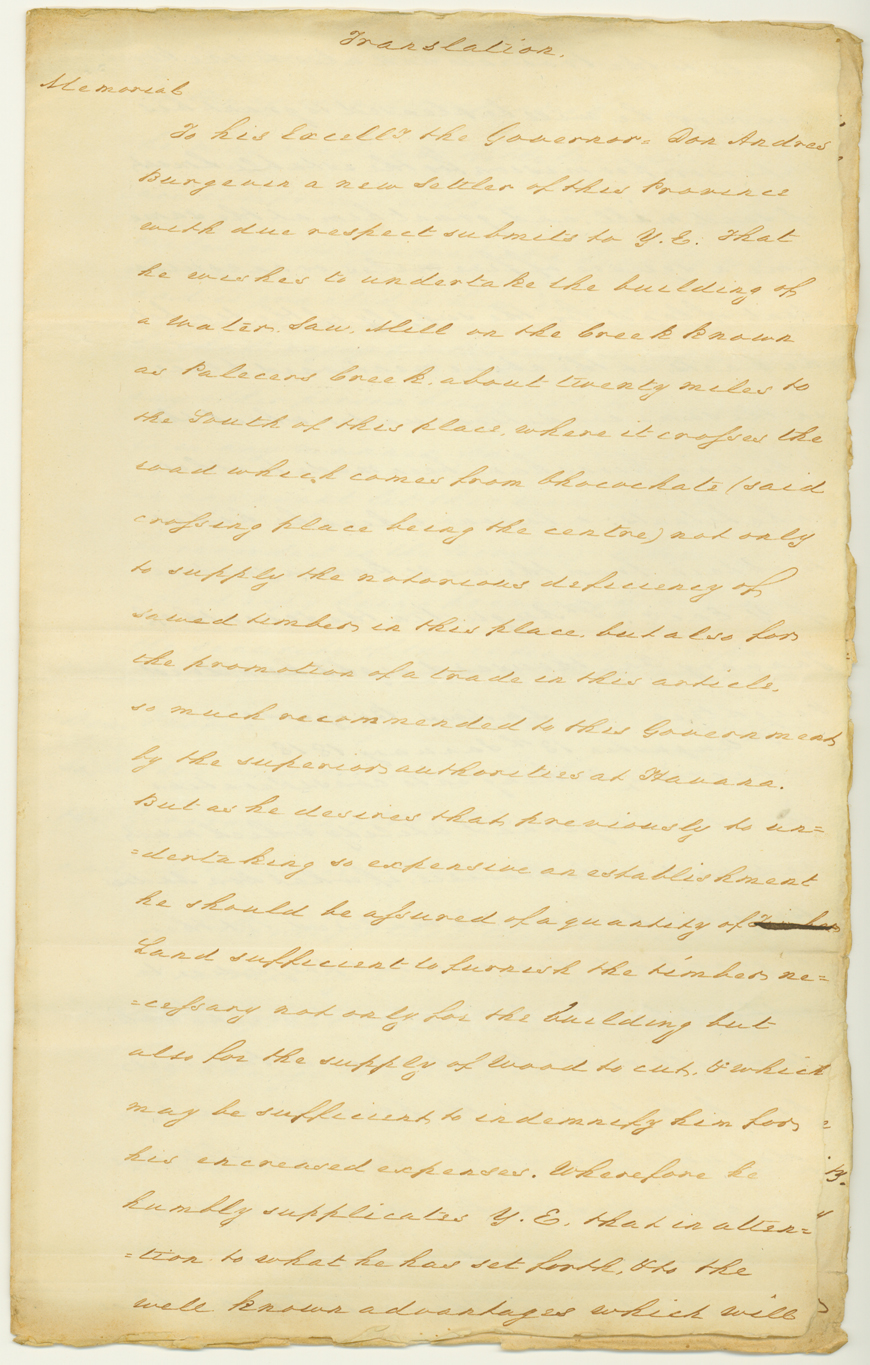 Translation.
Memorial
To his Excelly the Governor= Don Andres
Burgevin a new Settler of this Province
with due respect submits to Y. E. That
he wishes to undertake the building of
a Water Saw Mill on the Creek known
as Palecers Creek, about twenty miles to
the South of this place, where it crosses the
road which comes from Chocochate (said
crossing place being the centre) not only
to supply the notorious deficiency of
sawed timber, in this place, but also for
the promotion of a trade in this article,
so much recommended to this Government
by the superior authorities at Havana.
But as he desires that, previously to un=
=dertaking so expensive an establishment
he should be assured of a quantity of
Land sufficient to furnish the timber ne=
=cessary not only for the building but
also for the supply of Wood to cut, & which
may be sufficient to indemnify him for
his encreased expenses. Wherefore he
humbly supplicates Y. E. that in atten=
=tion to what he has set forth, & to the
well known advantages which will